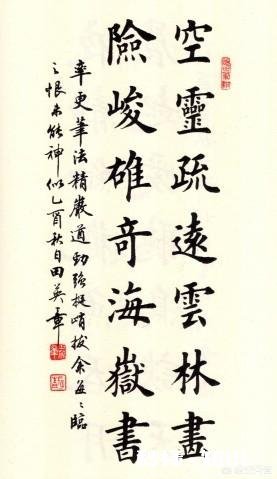 空靈疏遠雲林畫
險峻雄奇海嶽書
率更筆法精嚴遒勁強挺峭拔余每々臨
之恨未能神似乙酉秋日田英章